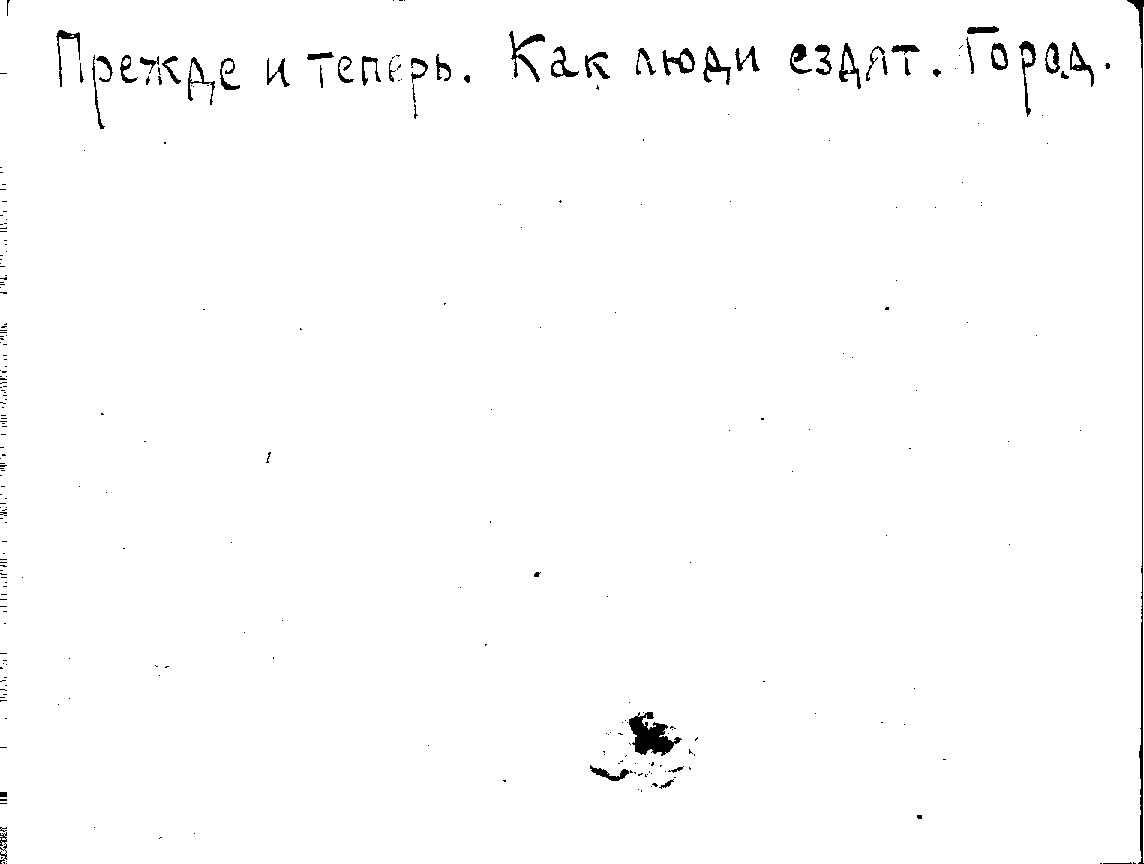 Прежде и теперь. Как люди ездят. Город.